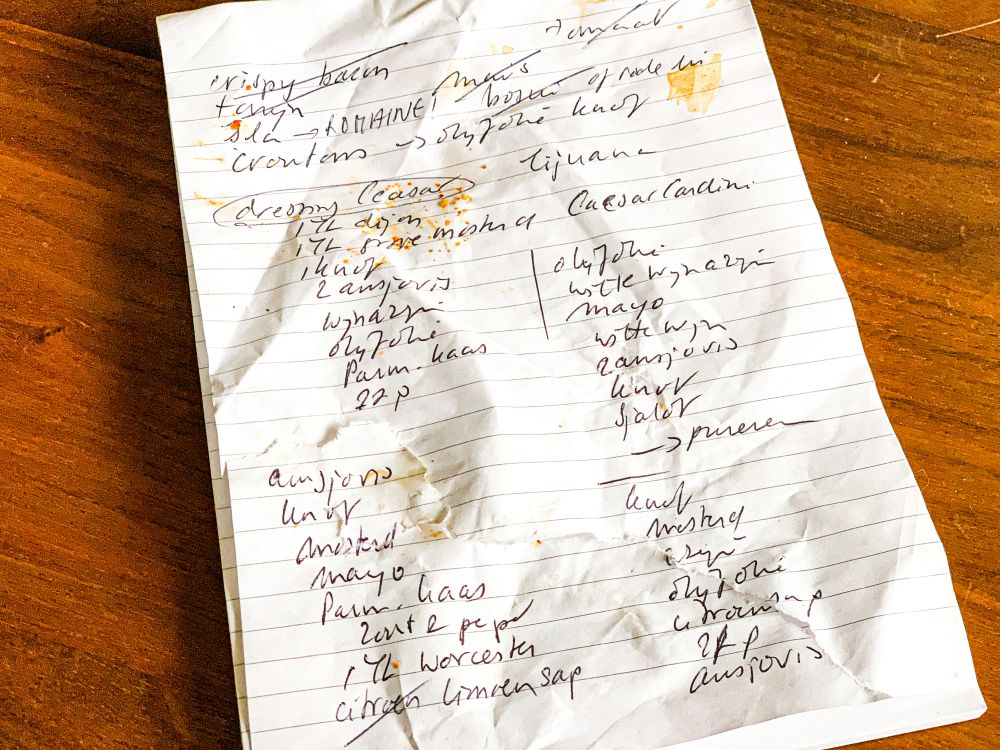 tomaat
crispy bacon
mais
tonijn
bosui of rode ui
sla → ROMAINE!
croutons → olijfolie knof
tijuana
dressing Ceasar
Caesar Cardini
1 TL dijon
1 TL grove mosterd
1 knof
2 ansjovis
wijnazijn
olijfolie
Parm. kaas
z+p
olijfolie
witte wijnazijn
mayo
witte wijn
2 ansjovis
knof
sjalot
→ pureren
ansjovis
knof
mosterd
mayo
Parm. kaas
zout & peper
1 TL worcester
citroen limoensap
knof
mosterd
azijn
olijfolie
citroensap
z+p
ansjovis